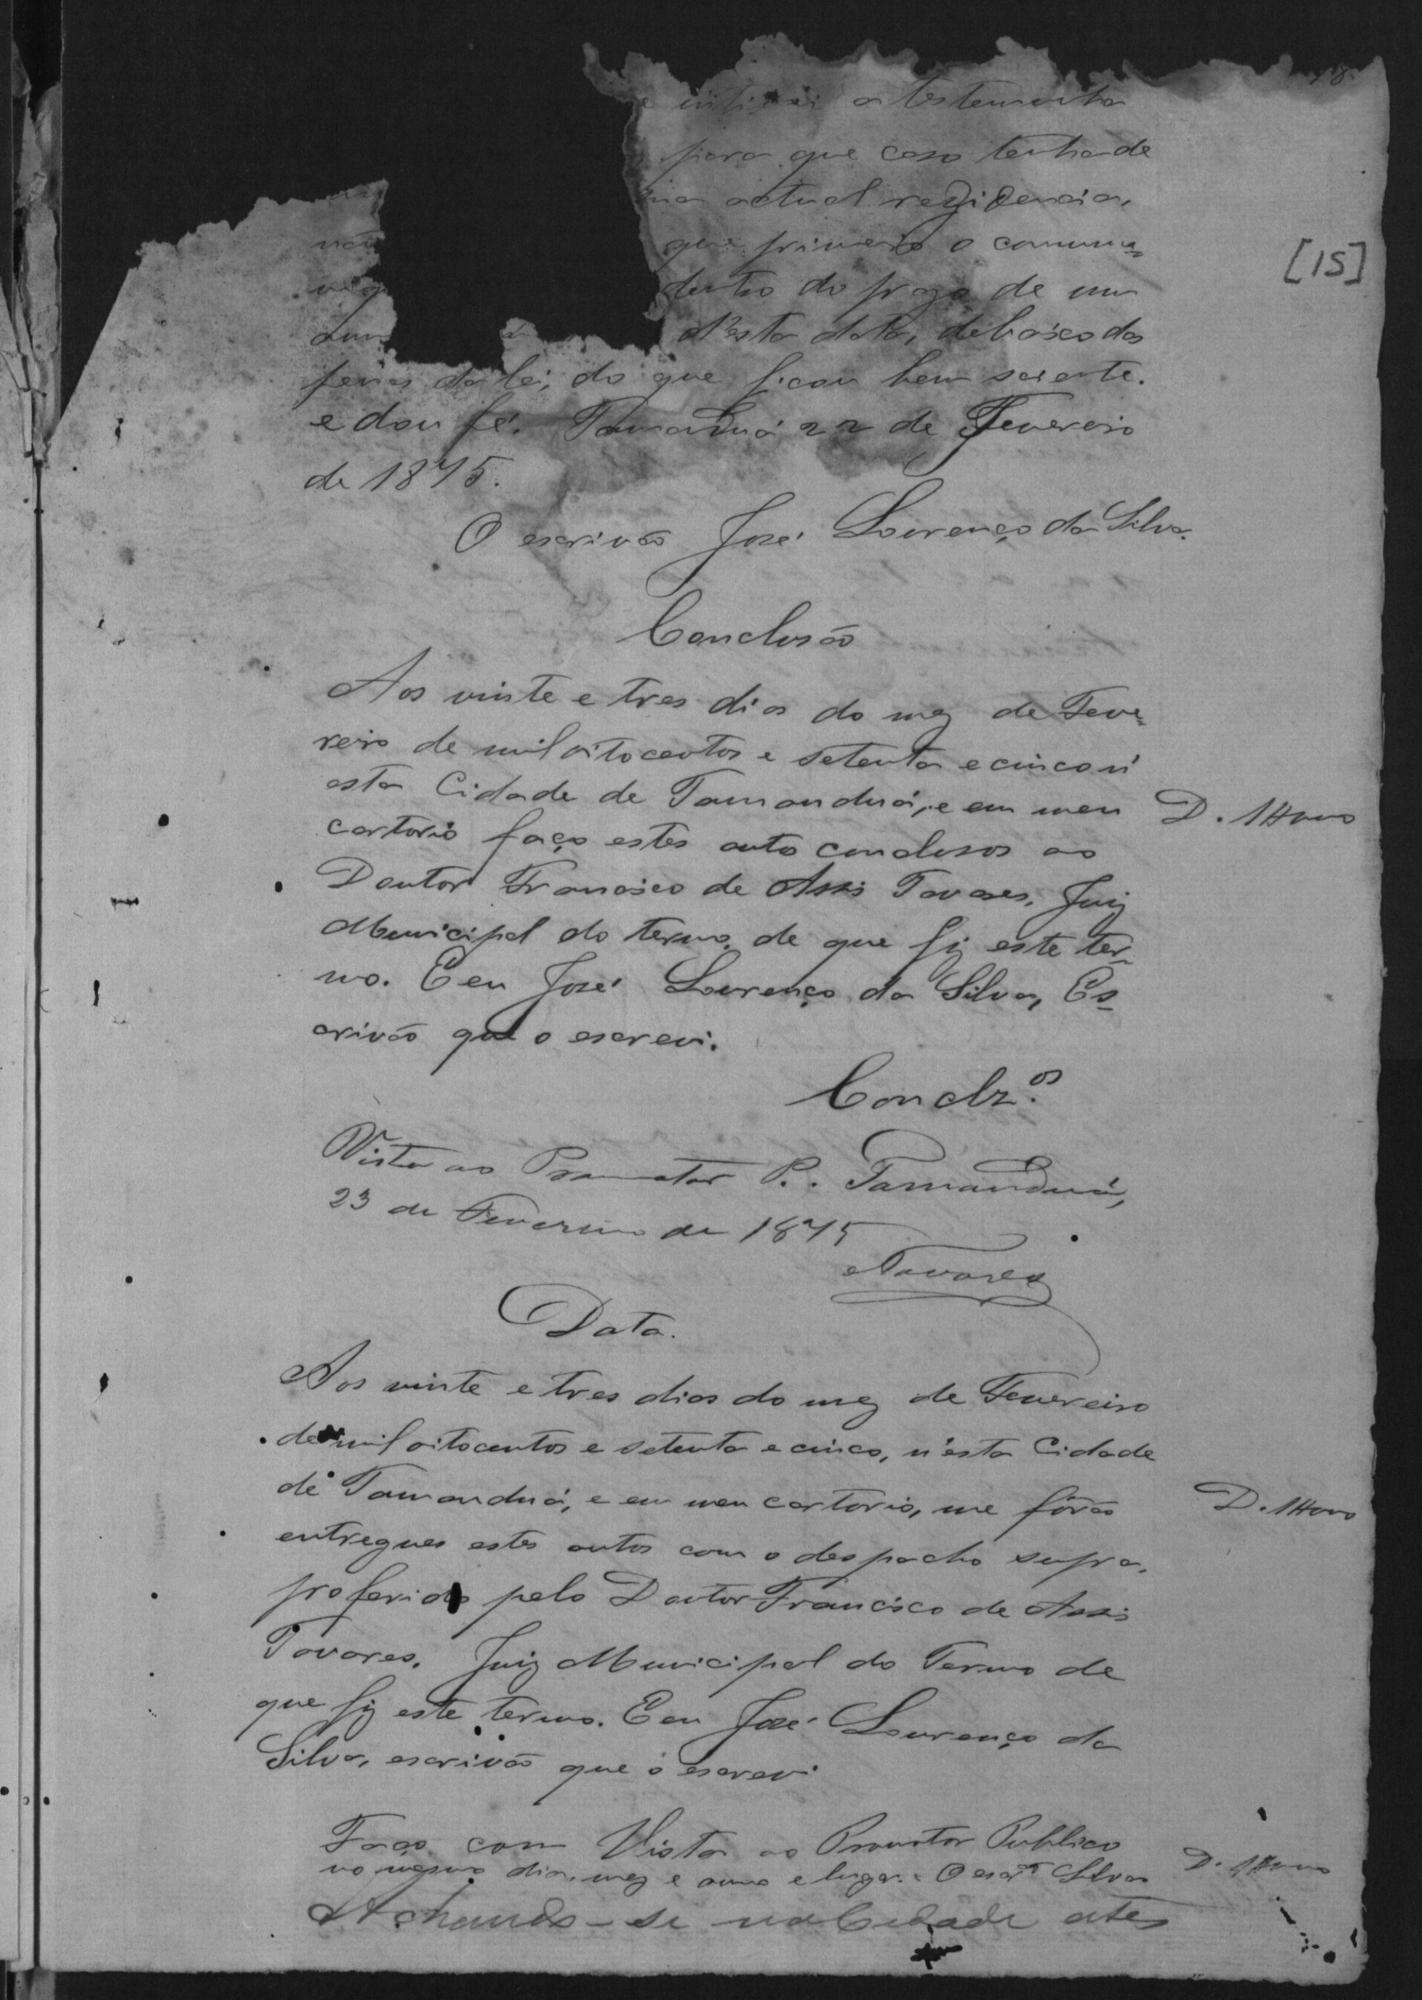 e intimei a testemunha
para que caso tenha de
actual rezidencia,
que primeiro o commu=
dentro do prazo de um
d'esta data, debaixo das
penas da lei, do que ficou bem sciente.
e dou fé. Tamanduá 22 de Fevereiro
de 1875.
O escrivão José Lourenço da Silva.
[15]
Conclusão
Aos vinte e tres dias do mez de Feve=
reiro de mil oitocentos e setenta e cinco n'
esta Cidade de Tamanduá, e em meu
cartorio faço estes auto conclusos ao
Doutor Francisco de Assis Tavares, Juiz
Municipal do termo, de que fiz este ter=
mo. E eu José Lourenço da Silva, Es=
crivão que o escrevi.
Conclz.os
Vista ao Promotor P.. Tamanduá,
23 de Fevereiro de 1875
Tavares
Data.
Aos vinte e tres dias do mez de Fevereiro
de mil oitocentos e setenta e cinco, n'esta Cidade
de Tamanduá, e em meu cartorio, me fôrão
entregues estes autos com o despacho supra,
proferido pelo Doutor Francisco de Assis
Tavares, Juiz Municipal do Termo de
que fiz este termo. E eu José Lourenço da
Silva, escrivão que o escrevi
Faço com Vista ao Promotor Publico
no mesmo dia, mez e anno e lugar. O escr.am Silva
Achando-se na Cidade